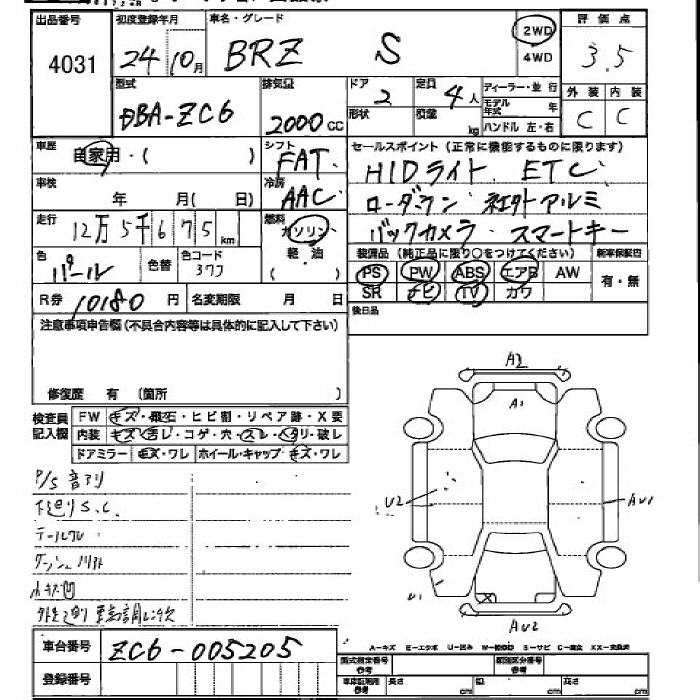 出品番号
4031
初度登録年月
24年10月
車名・グレード
BRZ S
2WD
4WD
評価点
3.5
型式
DBA-ZC6
排気量
2000cc
ドア
2
形状
定員
4人
積量
kg
ディーラー・並行
モデル年式 年
ハンドル 左・右
外装
C
内装
C
車歴
自家用・( )
シフト
FAT
冷房
AAC
セールスポイント(正常に機能するものに限ります)
HIDライト ETC
ローダウン 社外アルミ
バックカメラ・スマートキー
車検
年 月( 日)
走行
12万5千675km
燃料
ガソリン
軽・油
( )
色
パール
色替
色コード
37J
装備品(純正品に限り○をつけてください)
PS PW ABS エアB AW
SR ナビ TV カワ
新車保証書
有・無
R券 10180円
名変期限 月 日
後日品
注意事項申告欄(不具合内容等は具体的に記入して下さい)
修復歴 有 (箇所 )
検査員記入欄
FW キズ・飛石・ヒビ割・リペア跡・X要
内装 キズ・汚レ・コゲ・穴・スレ・ヘタリ・破レ
ドアミラー キズ・ワレ ホイール・キャップ キズ・ワレ
P/S 音アリ
下廻りS.C.
テールワレ
小キズ凹
A2
A1
U2
AU1
U1
AU2
車台番号
ZC6-005205
登録番号
A-キズ E-エクボ U-凹み W-補修跡 S-サビ C-腐食 XX-交換済
型式指定番号
参考
類別区分番号
参考
車庫証明用
参考
長さ cm
幅 cm
高さ cm